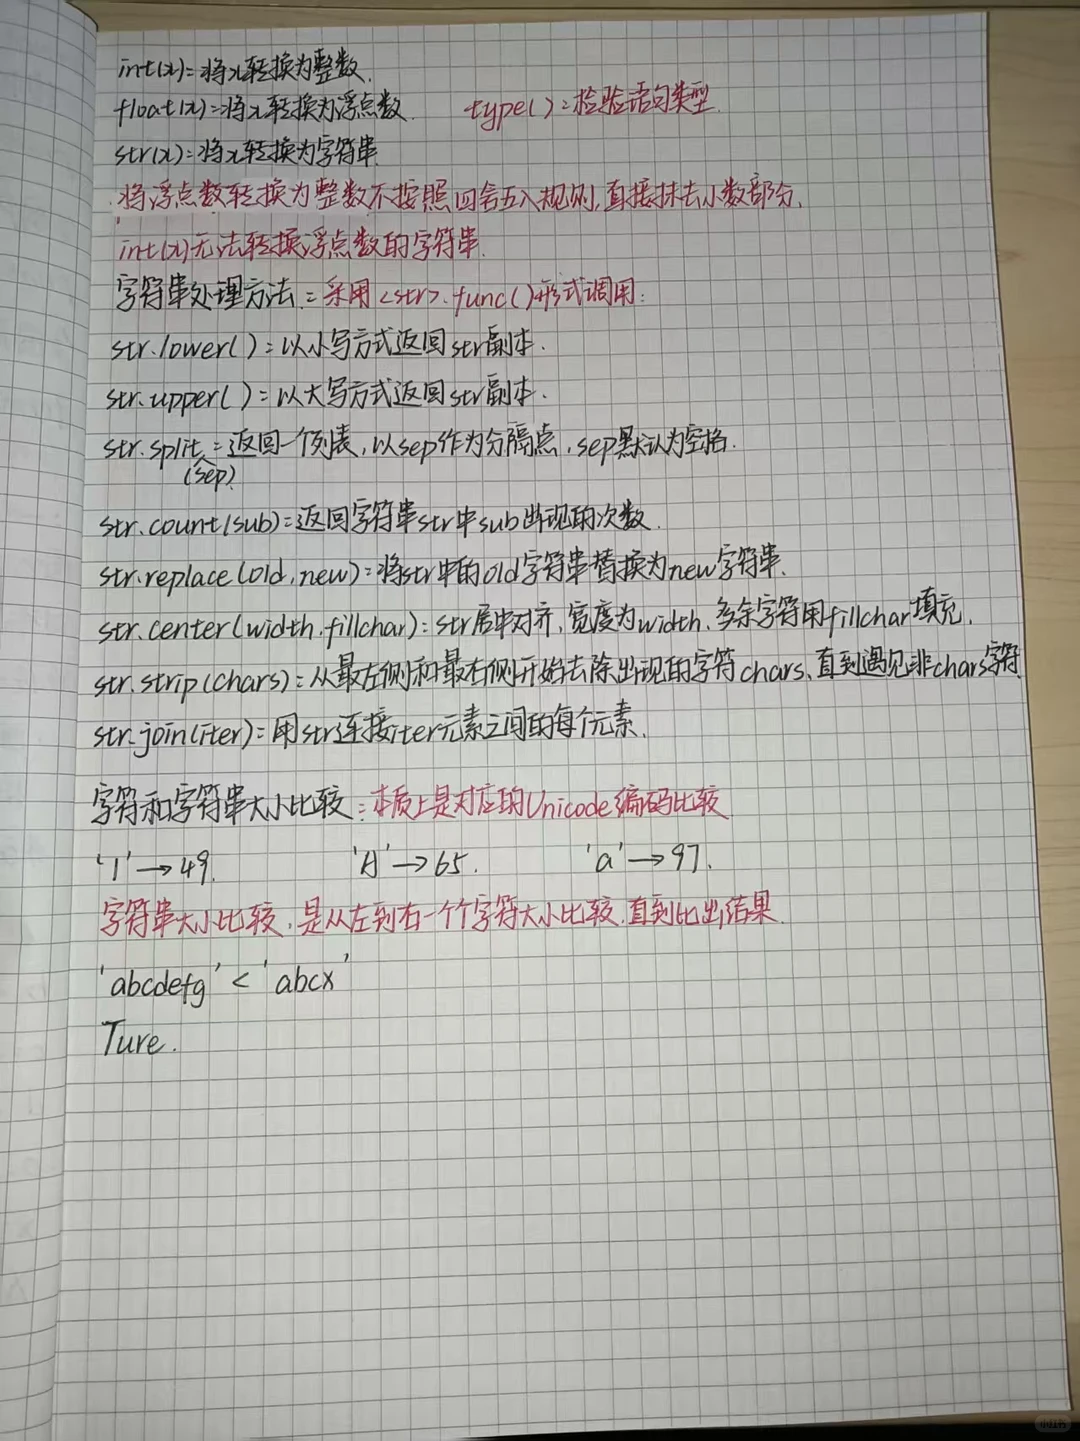 int(x):将x转换为整数.
float(x):将x转换为浮点数. type():检验语句类型.
str(x):将x转换为字符串.
将浮点数转换为整数不按照四舍五入规则,直接抹去小数部分.
int(x)无法转换浮点数的字符串.
字符串处理方法:采用<str>.func()形式调用:
str.lower():以小写方式返回str副本.
str.upper():以大写方式返回str副本.
str.split:返回一个列表,以sep作为分隔点,sep默认为空格.
(sep)
str.count(sub):返回字符串str中sub出现的次数.
str.replace(old,new):将str中的old字符串替换为new字符串.
str.center(width,fillchar):str居中对齐,宽度为width,多余字符用fillchar填充.
str.strip(chars):从最左侧和最右侧开始去除出现的字符chars,直到遇见非chars字符
str.join(iter):用str连接iter元素之间的每个元素.
字符和字符串大小比较:本质上是对应的Unicode编码比较
'1'→49. 'A'→65. 'a'→97.
字符串大小比较,是从左到右一个个字符大小比较,直到比出结果.
'abcdefg' < 'abcx'
Ture.
小红书